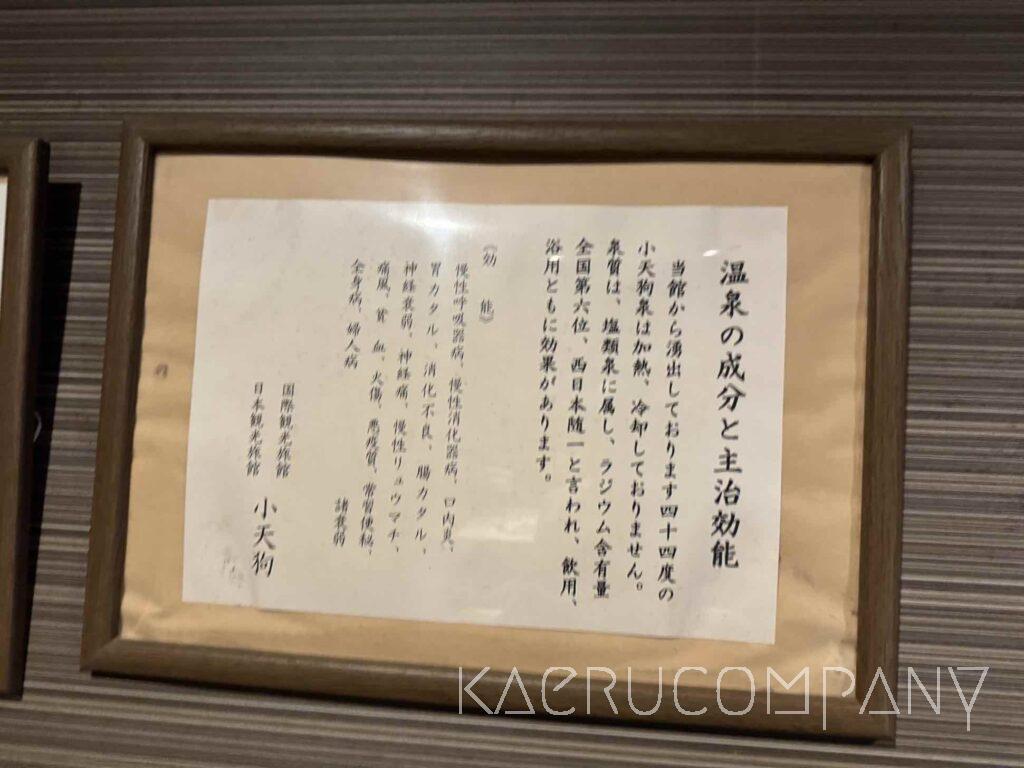 温泉の成分と主治効能
当館から湧出しております四十四度の
小天狗泉は加熱、冷却しておりません。
泉質は、塩類泉に属し、ラジウム含有量
全国第六位、西日本随一と言われ、飲用、
浴用ともに効果があります。
《効 能》
慢性呼吸器病、慢性消化器病、口内炎、
胃カタル、消化不良、腸カタル、
神経衰弱、神経痛、慢性リュウマチ、
痛風、貧血、火傷、悪疫質、常習便秘、
全身病、婦人病 諸衰弱
国際観光旅館
日本観光旅館 小天狗
KAERUCOMPANY